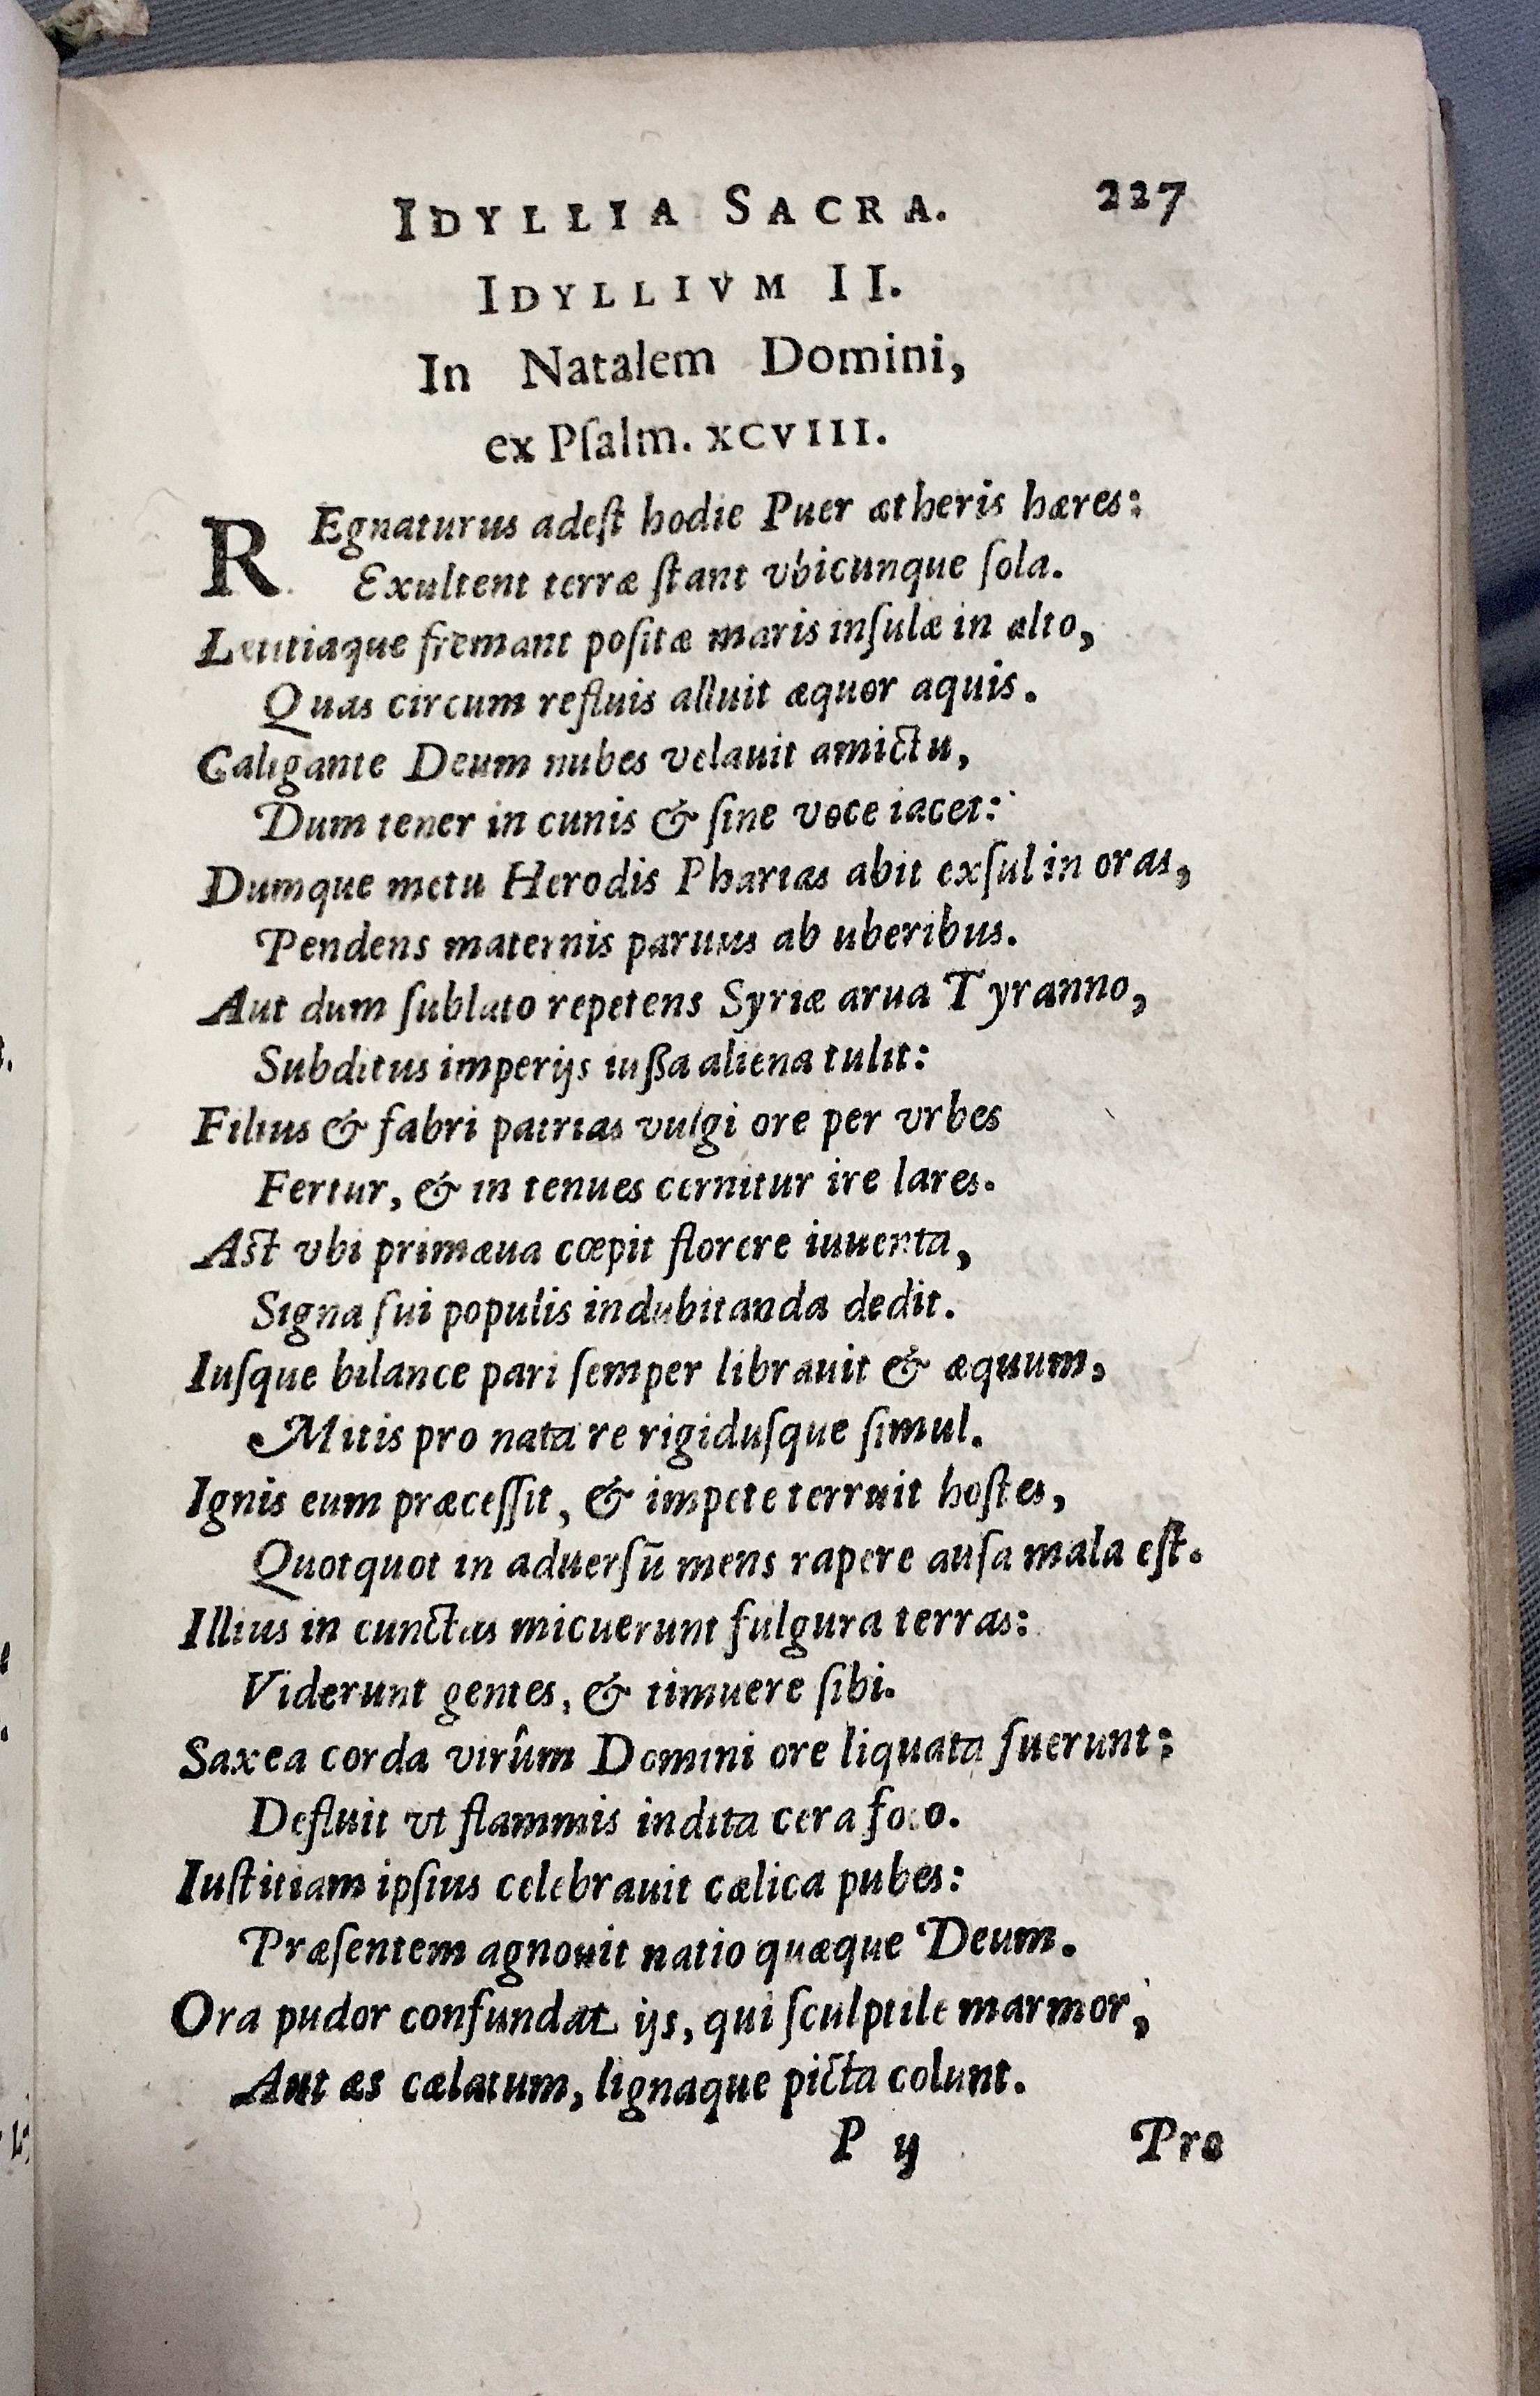 IDYLLIA SACRA. 227
IDYLLIVM II.
In Natalem Domini,
ex Pſalm. XCVIII.
REgnaturus adeſt hodie Puer ætheris hæres:
Exultent terræ ſtant vbicunque ſola.
Letitiaque fremant poſitæ maris inſulæ in alto,
Quas circum refluis alluit æquor aquis.
Caligante Deum nubes velauit amictu,
Dum tener in cunis & ſine voce iacet:
Dumque metu Herodis Pharias abit exſul in oras,
Pendens maternis paruus ab uberibus.
Aut dum ſublato repetens Syriæ arua Tyranno,
Subditus imperijs iuſſa aliena tulit:
Filius & fabri patrias vulgi ore per vrbes
Fertur, & in tenues cernitur ire lares.
Aſt vbi primæua cœpit florere iuuenta,
Signa ſui populis indubitanda dedit.
Iuſque bilance pari ſemper librauit & æquum,
Mitis pro nata re rigiduſque ſimul.
Ignis eum præceſſit, & impete terruit hoſtes,
Quotquot in aduerſũ mens rapere auſa mala eſt.
Illius in cunctas micuerunt fulgura terras:
Viderunt gentes, & timuere ſibi.
Saxea corda virûm Domini ore liquata fuerunt:
Defluit vt flammis indita cera foco.
Iuſtitiam ipſius celebrauit cælica pubes:
Præſentem agnouit natio quæque Deum.
Ora pudor confundat ijs, qui ſculptile marmor,
Aut æs cælatum, lignaque picta colunt.
P ij Pro